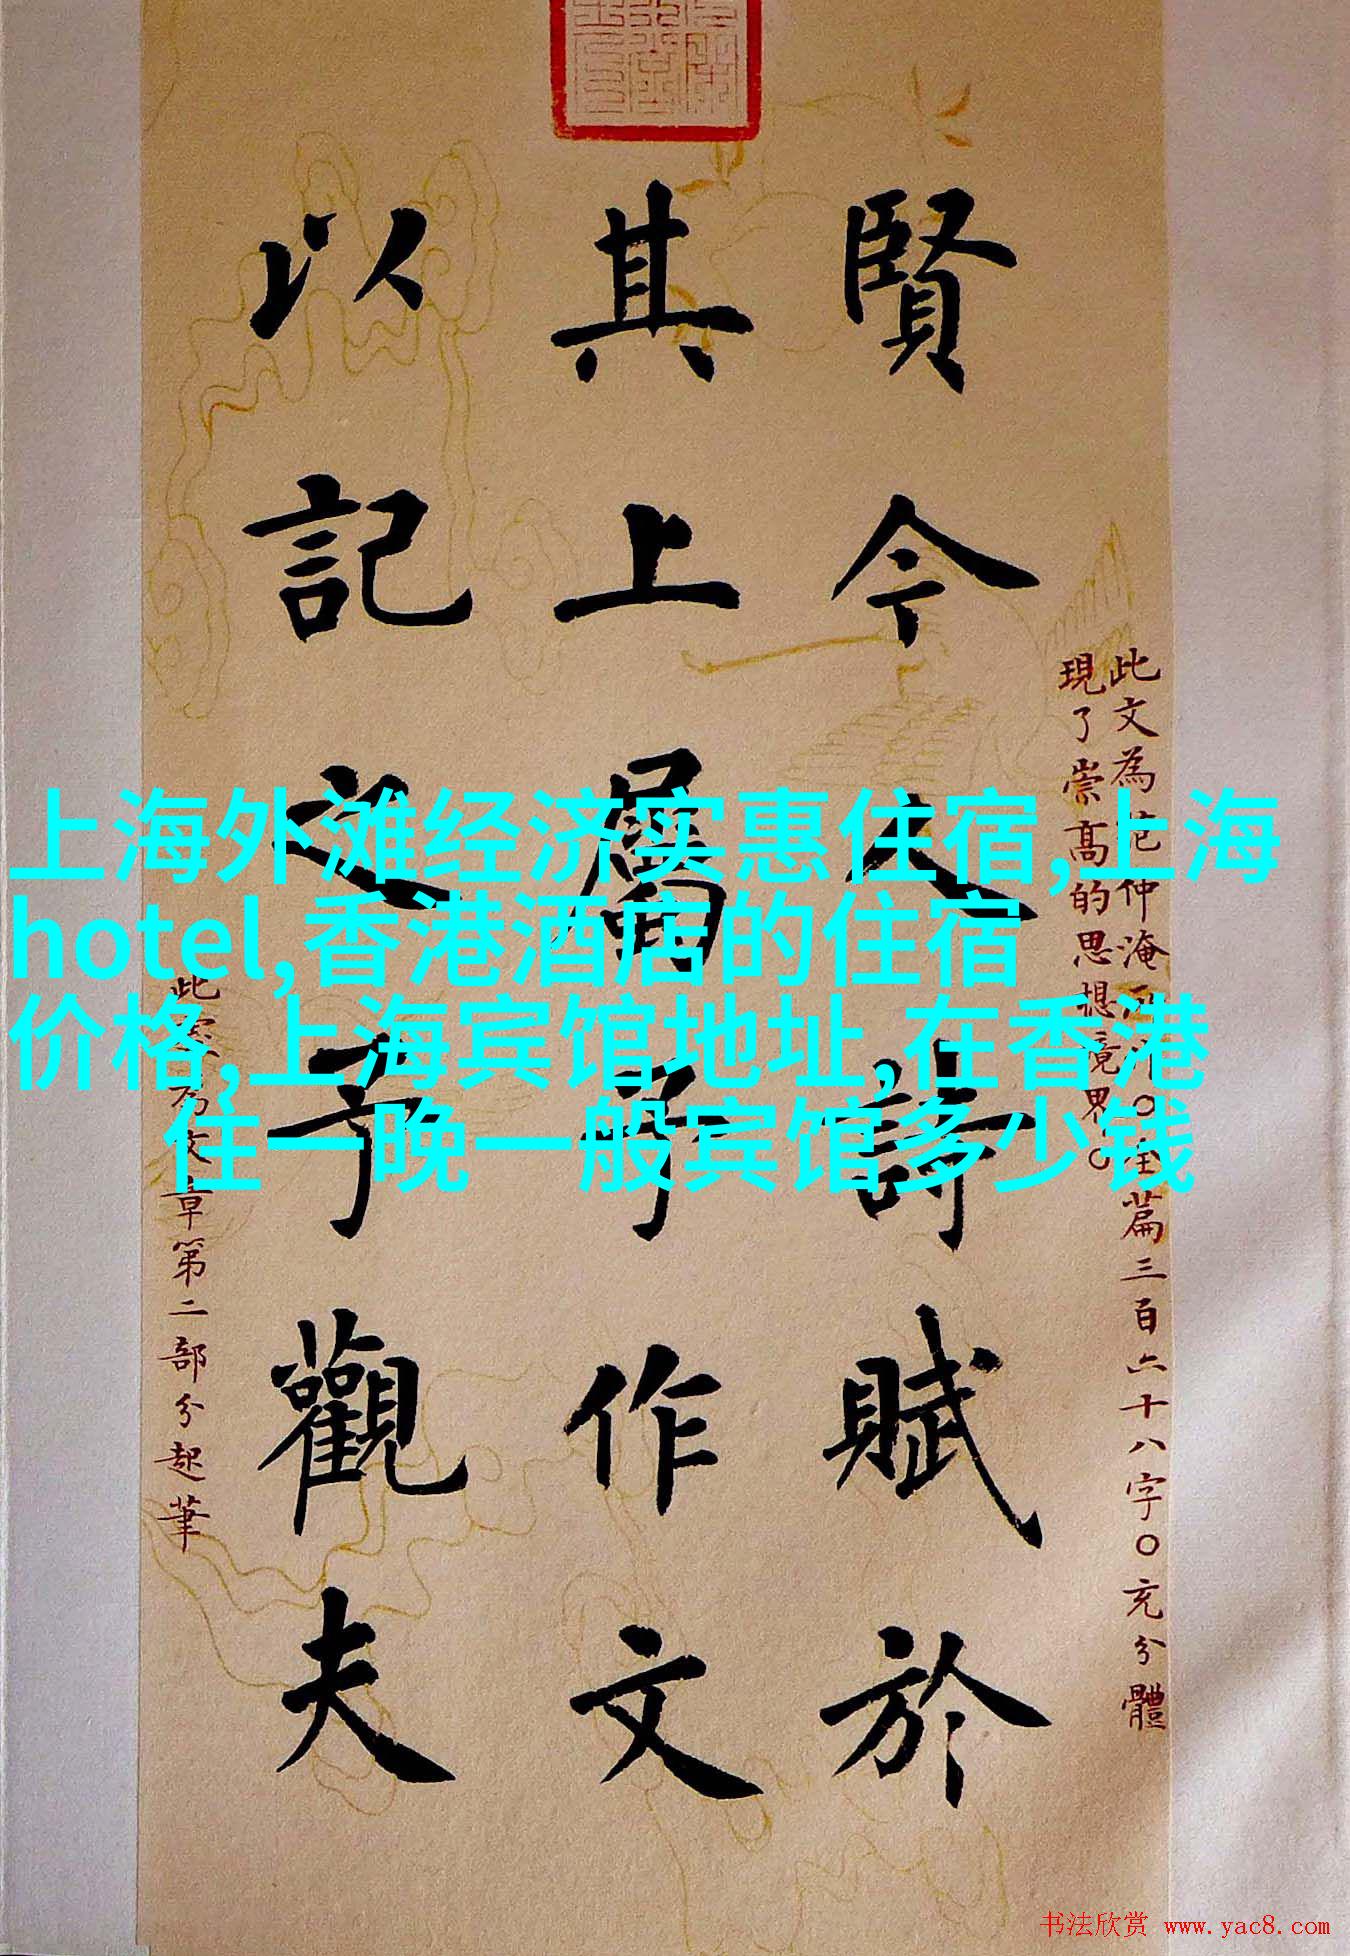 此文為范仲淹○全篇三百六十八字○充分體
現了崇高的思想境界○
賢今人詩賦於
其上屬予作文
以記之予觀夫
此為文章第二部分起筆
上海外滩经济实惠住宿,上海
hotel,香港酒店的住宿
价格,上海宾馆地址,在香港
住一晚一般宾馆多少钱
书法欣赏 www.yac8.com